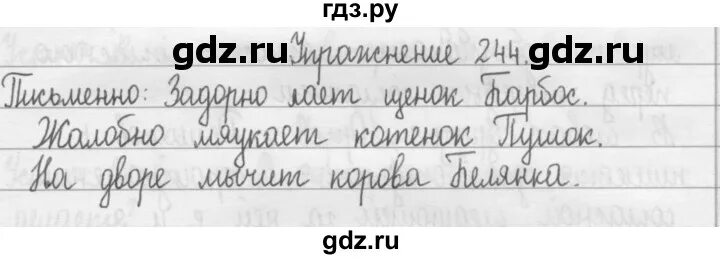 гдз.ру
gdz.ru gdz.ru
Упражнение 244.
Письменно: Задорно лает щенок Барбос.
Жалобно мяукает котенок Пушок.
На дворе мычит корова Белянка.
gdz.ru gdz.ru
gdz.ru